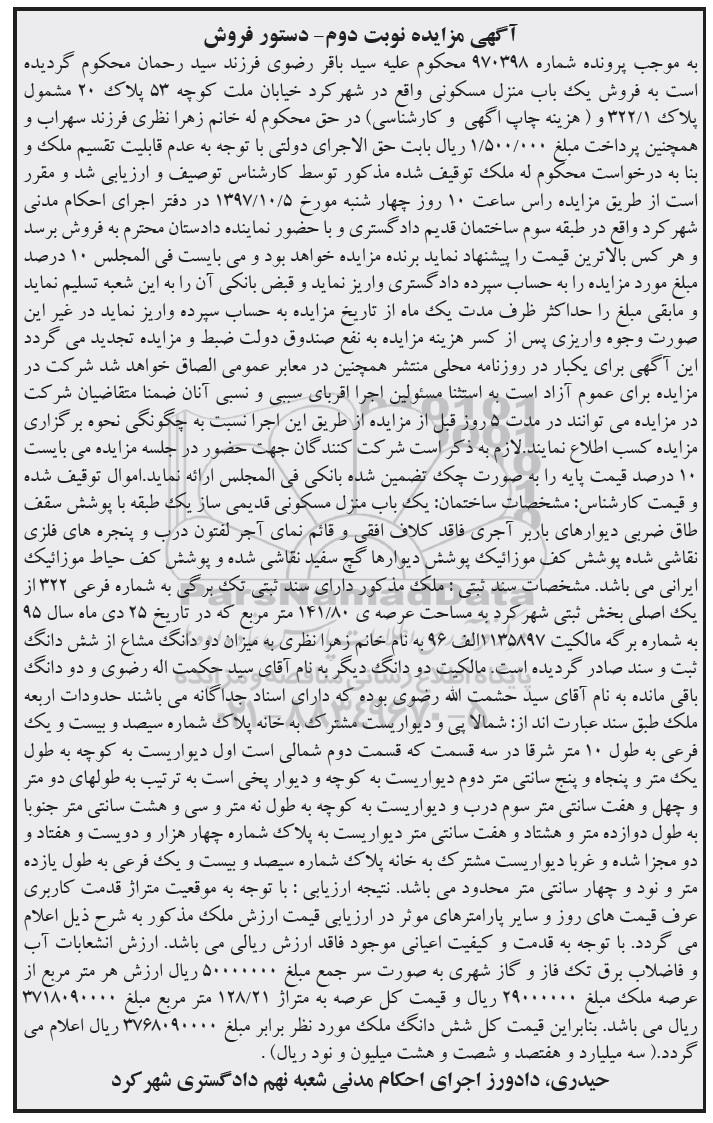 آگهی مزایده نوبت دوم- دستور فروش
به موجب پرونده شماره ۹۷۰۳۹۸ محکوم علیه سید باقر رضوی فرزند سید رحمان محکوم گردیده
است به فروش یک باب منزل مسکونی واقع در شهرکرد خیابان ملت کوچه ۵۳ پلاک ۲۰ مشمول
پلاک ۳۲۲/۱ و ( هزینه چاپ اگهی و کارشناسی) در حق محکوم له خانم زهرا نظری فرزند سهراب و
همچنین پرداخت مبلغ ۱/۵۰۰/۰۰۰ ریال بابت حق الاجرای دولتی با توجه به عدم قابلیت تقسیم ملک و
بنا به درخواست محکوم له ملک توقیف شده مذکور توسط کارشناس توصیف و ارزیابی شد و مقرر
است از طریق مزایده راس ساعت ۱۰ روز چهار شنبه مورخ ۱۳۹۷/۱۰/۵ در دفتر اجرای احکام مدنی
شهرکرد واقع در طبقه سوم ساختمان قدیم دادگستری و با حضور نماینده دادستان محترم به فروش برسد
و هر کس بالاترین قیمت را پیشنهاد نماید برنده مزایده خواهد بود و می بایست فی المجلس ۱۰ درصد
مبلغ مورد مزایده را به حساب سپرده دادگستری واریز نماید و قبض بانکی آن را به این شعبه تسلیم نماید
و مابقی مبلغ را حداکثر ظرف مدت یک ماه از تاریخ مزایده به حساب سپرده واریز نماید در غیر این
صورت وجوه واریزی پس از کسر هزینه مزایده به نفع صندوق دولت ضبط و مزایده تجدید می گردد
این آگهی برای یکبار در روزنامه محلی منتشر همچنین در معابر عمومی الصاق خواهد شد شرکت در
مزایده برای عموم آزاد است به استثنا مسئولین اجرا اقربای سببی و نسبی آنان ضمنا متقاضیان شرکت
در مزایده می توانند در مدت ۵ روز قبل از مزایده از طریق این اجرا نسبت به چگونگی نحوه برگزاری
مزایده کسب اطلاع نمایند.لازم به ذکر است شرکت کنندگان جهت حضور در جلسه مزایده می بایست
۱۰ درصد قیمت پایه را به صورت چک تضمین شده بانکی فی المجلس ارائه نماید.اموال توقیف شده
و قیمت کارشناس: مشخصات ساختمان: یک باب منزل مسکونی قدیمی ساز یک طبقه با پوشش سقف
طاق ضربی دیوارهای باربر آجری فاقد کلاف افقی و قائم نمای آجر لفتون درب و پنجره های فلزی
نقاشی شده پوشش کف موزائیک پوشش دیوارها گچ سفید نقاشی شده و پوشش کف حیاط موزائیک
ایرانی می باشد. مشخصات سند ثبتی : ملک مذکور دارای سند ثبتی تک برگی به شماره فرعی ۳۲۲ از
یک اصلی بخش ثبتی شهرکرد به مساحت عرصه ی ۱۴۱/۸۰ متر مربع که در تاریخ ۲۵ دی ماه سال ۹۵
به شماره برگه مالکیت ۱۱۳۵۸۹۷الف ۹۶ به نام خانم زهرا نظری به میزان دو دانگ مشاع از شش دانگ
ثبت و سند صادر گردیده است. مالکیت دو دانگ دیگر به نام آقای سید حکمت اله رضوی و دو دانگ
باقی مانده به نام آقای سید حشمت الله رضوی بوده که دارای اسناد جداگانه می باشند حدودات اربعه
ملک طبق سند عبارت اند از: شمالا پی و دیواریست مشترک به خانه پلاک شماره سیصد و بیست و یک
فرعی به طول ۱۰ متر شرقا در سه قسمت که قسمت دوم شمالی است اول دیواریست به کوچه به طول
یک متر و پنجاه و پنج سانتی متر دوم دیواریست به کوچه و دیوار پخی است به ترتیب به طولهای دو متر
و چهل و هفت سانتی متر سوم درب و دیواریست به کوچه به طول نه متر و سی و هشت سانتی متر جنوبا
به طول دوازده متر و هشتاد و هفت سانتی متر دیواریست به پلاک شماره چهار هزار و دویست و هفتاد و
دو مجزا شده و غربا دیواریست مشترک به خانه پلاک شماره سیصد و بیست و یک فرعی به طول یازده
متر و نود و چهار سانتی متر محدود می باشد. نتیجه ارزیابی : با توجه به موقعیت متراژ قدمت کاربری
عرف قیمت های روز و سایر پارامترهای موثر در ارزیابی قیمت ارزش ملک مذکور به شرح ذیل اعلام
می گردد. با توجه به قدمت و کیفیت اعیانی موجود فاقد ارزش ریالی می باشد. ارزش انشعابات آب
و فاضلاب برق تک فاز و گاز شهری به صورت سر جمع مبلغ ۵۰۰۰۰۰۰۰ ریال ارزش هر متر مربع از
عرصه ملک مبلغ ۲۹۰۰۰۰۰۰ ریال و قیمت کل عرصه به متراژ ۱۲۸/۲۱ متر مربع مبلغ ۳۷۱۸۰۹۰۰۰۰
ریال می باشد. بنابراین قیمت کل شش دانگ ملک مورد نظر برابر مبلغ ۳۷۶۸۰۹۰۰۰۰ ریال اعلام می
گردد.( سه میلیارد و هفتصد و شصت و هشت میلیون و نود ریال) .
حیدری، دادورز اجرای احکام مدنی شعبه نهم دادگستری شهرکرد
ParsNamadData
پایگاه اطلاع رسانی مناقصه و مزایده
۰۲۱-۸۸۳۴۹۶۷۰-۵